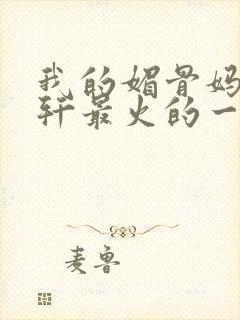 我的媚骨妈
轩最火的一
麦鲁